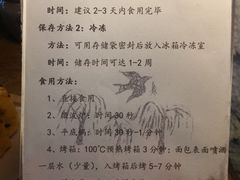 时间：建议2-3天内食用完毕
保存方法2：冷冻
方法：可用存储袋密封后放入冰箱冷冻室
时间：储存时间可达1-2周
食用方法：
1、直接食用
2、微波炉：时间30秒
3、平底锅：时间30秒-1分钟
4、烤箱：100℃预热烤箱3分钟；面包表面喷洒
一层水（少量），入烤箱后烤5-7分钟